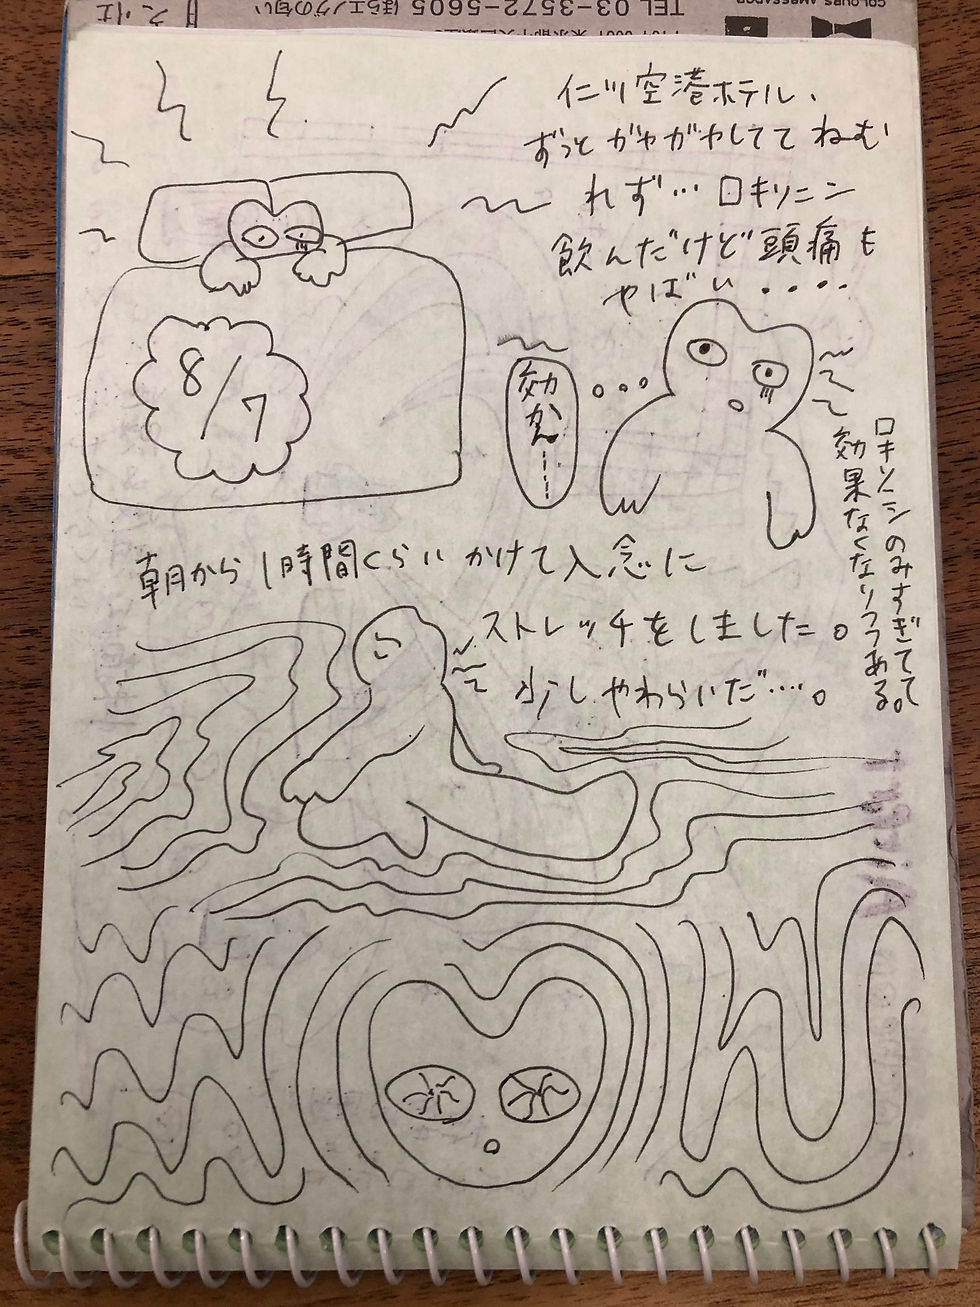 仁川空港ホテル、
ずっとガヤガヤしてて ねむ
れず… ロキソニン
飲んだけど頭痛も
やばい ‥‥
8/7
効かん……
ロキソニンのみすぎてて
効果なくなりつつある。
朝から1時間くらいかけて入念に
ストレッチをしました。
少しやわらいだ…。
TEL 03-3572-5605 ほらエノグの匂い
COLOURS AMBASSADOR